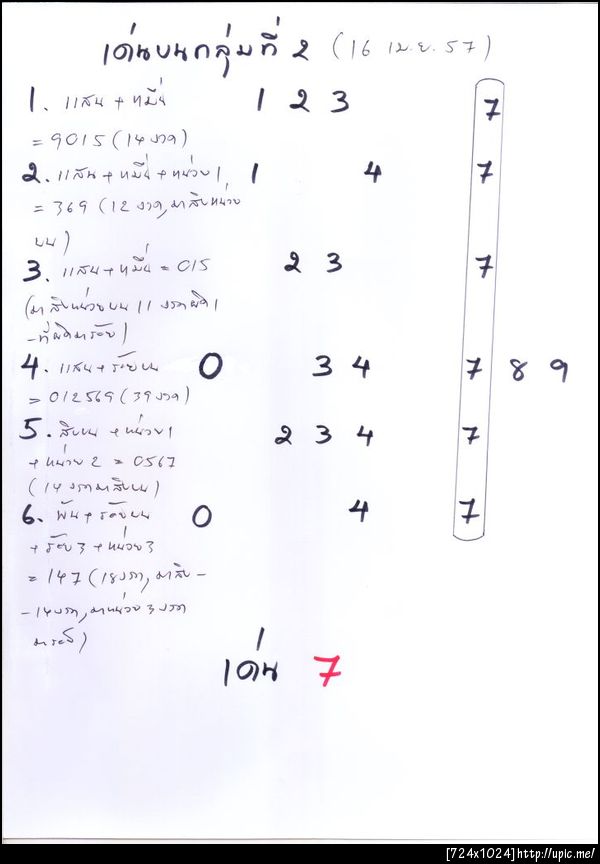 เด่นบนกลุ่มที่ 2 (16 เม.ย. 57)
1. แสน + หมื่น 1 2 3 7
= 9015 (14 งวด)
2. แสน + หมื่น + หน่วย 1 4 7
= 369 (12 งวด, มาสิบหน่วย
บน)
3. แสน + หมื่น = 015 2 3 7
(มาสิบหน่วยบน 11 งวดผิด 1
- ที่ผิดมาร้อย)
4. แสน + ร้อยบน 0 3 4 7 8 9
= 012569 (39 งวด)
5. สิบบน + หน่วย 1 2 3 4 7
+ หน่วย 2 = 0567
(14 งวดมาสิบบน)
6. พัน + ร้อยบน 0 4 7
+ ร้อย 3 + หน่วย 3
= 147 (18 งวด, มาสิบ -
- 14 งวด, มาหน่วย 3 งวด
เด่น 7
[724x1024]http://upic.me/